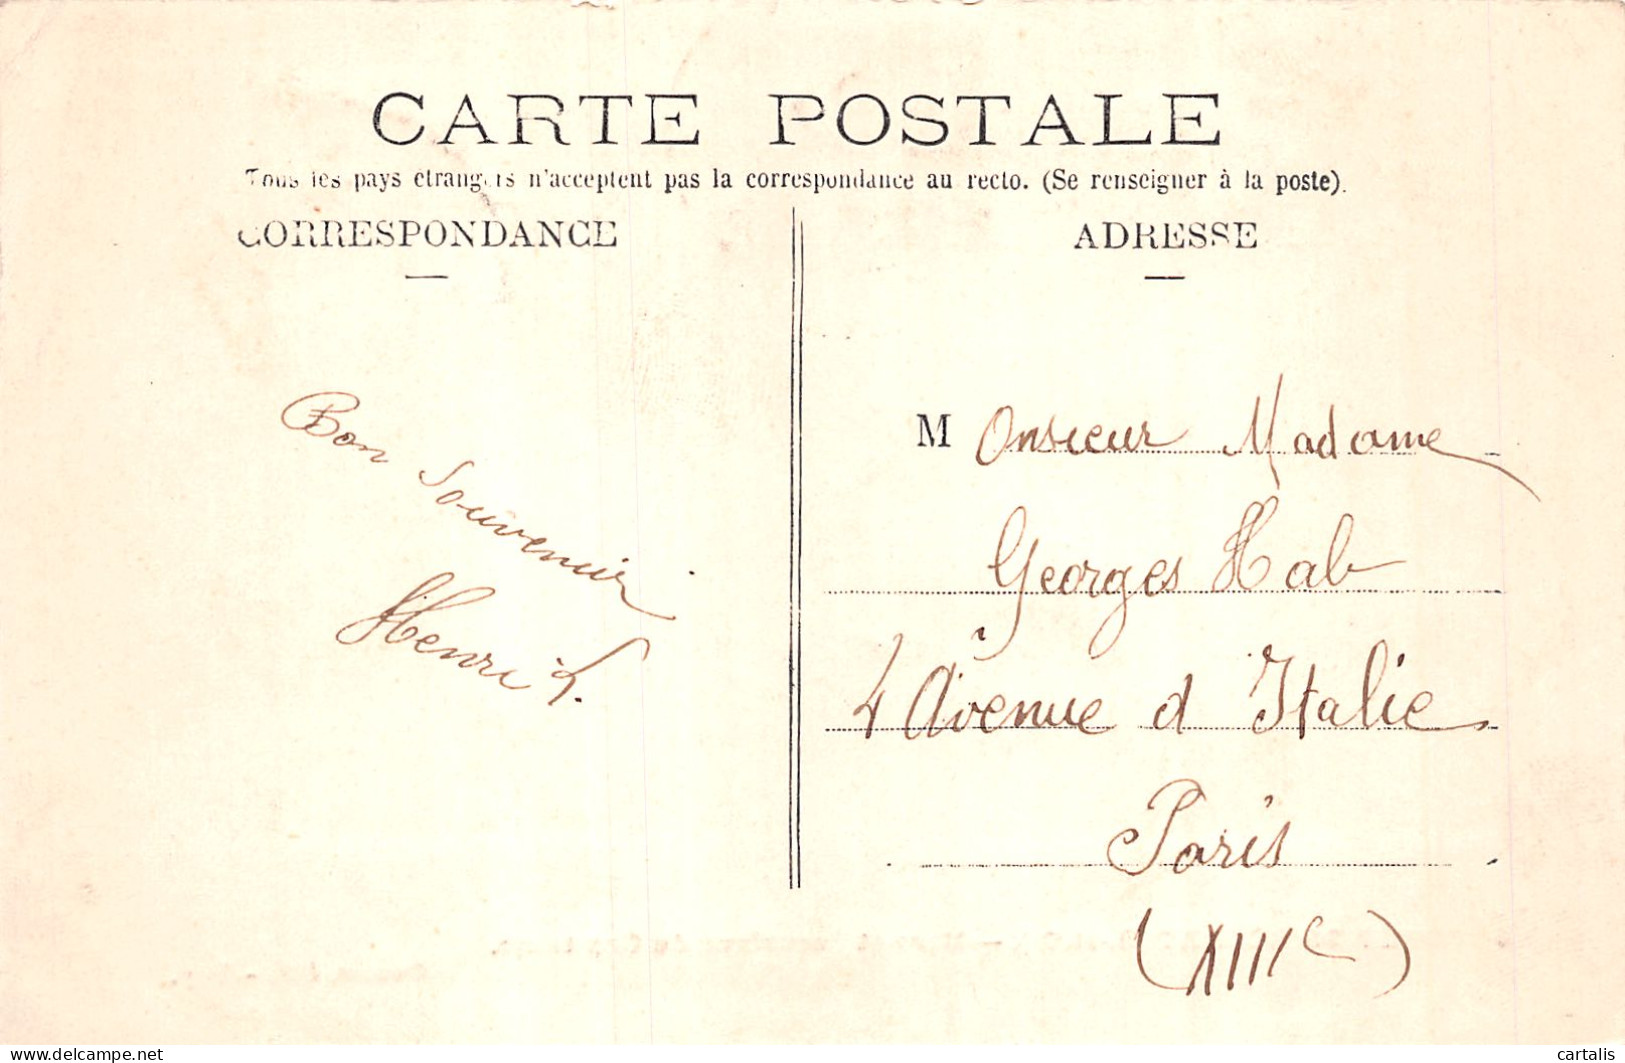 CARTE POSTALE
Tous les pays étrangers n'acceptent pas la correspondance au recto. (Se renseigner à la poste).
CORRESPONDANCE
ADRESSE
Bon Souvenir
Henri L.
Monsieur Madame
Georges Hab
4 Avenue d Italie
Paris
(XIIIe)
www.delcampe.net
cartalis